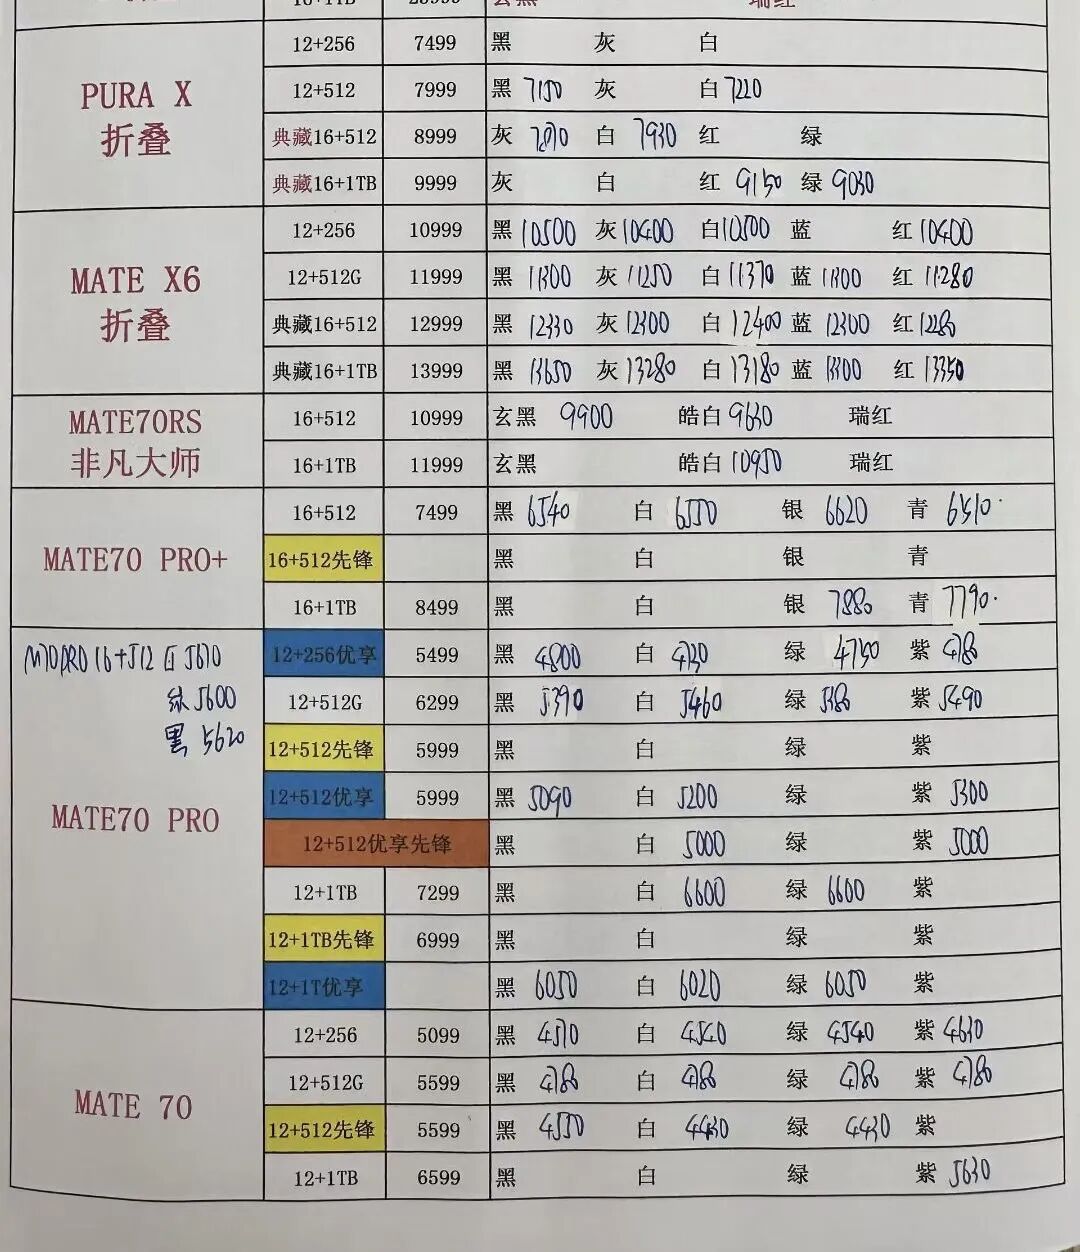 16+1TB 23999 玄黑 瑞红
PURA X
折叠
12+256 7499 黑 灰 白
12+512 7999 黑 7150 灰 白 7220
典藏16+512 8999 灰 白 7930 红 绿
典藏16+1TB 9999 灰 白 红 9150 绿 9030
MATE X6
折叠
12+256 10999 黑 10500 灰 10400 白 10500 蓝 红 10400
12+512G 11999 黑 11300 灰 11250 白 11370 蓝 1100 红 11280
典藏16+512 12999 黑 12330 灰 12300 白 12400 蓝 12300 红 12280
典藏16+1TB 13999 黑 13650 灰 13280 白 13180 蓝 13100 红 13350
MATE70RS
非凡大师
16+512 10999 玄黑 9900 皓白 9630 瑞红
16+1TB 11999 玄黑 皓白 10950 瑞红
MATE70 PRO+
16+512 7499 黑 6540 白 6550 银 6620 青 6510
16+512先锋 黑 白 银 青
16+1TB 8499 黑 白 银 7880 青 7790
M70PRO 16+512 白 5670
绿 5600
黑 5620
MATE70 PRO
12+256优享 5499 黑 4800 白 4730 绿 4750 紫 4780
12+512G 6299 黑 5390 白 5460 绿 5380 紫 5490
12+512先锋 5999 黑 白 绿 紫
12+512优享 5999 黑 5090 白 5200 绿 紫 5300
12+512优享先锋 黑 白 5000 绿 紫 5000
12+1TB 7299 黑 白 6600 绿 6600 紫
12+1TB先锋 6999 黑 白 绿 紫
12+1T优享 黑 6050 白 6020 绿 6050 紫
MATE 70
12+256 5099 黑 4570 白 4540 绿 4540 紫 4630
12+512G 5599 黑 4780 白 4780 绿 4780 紫 4780
12+512先锋 5599 黑 4550 白 4430 绿 4430 紫
12+1TB 6599 黑 白 绿 紫 5630